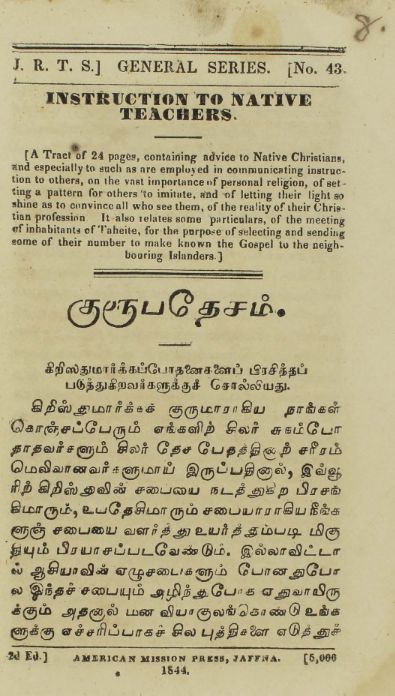 8.
J. R. T. S.] GENERAL SERIES. [No. 43.
INSTRUCTION TO NATIVE
TEACHERS.
[A Tract of 24 pages, containing advice to Native Christians,
and especially to such as are employed in communicating instruc-
tion to others, on the vast importance of personal religion, of set-
ting a pattern for others to imitate, and of letting their light so
shine as to convince all who see them, of the reality of their Chris-
tian profession It also relates some particulars, of the meeting
of inhabitants of Taheite, for the purpose of selecting and sending
some of their number to make known the Gospel to the neigh-
bouring Islanders.]
குரூபதேசம்.
கிறிஸ்துமார்க்கப்போதனைகளைப் பிரசித்தப்
படுத்துகிறவர்களுக்குச் சொல்லியது.
கிறிஸ்துமார்க்கக் குருமாராகிய நாங்கள்
கொஞ்சப்பேரும் எங்களிற் சிலர் சுகம்போ
தாதவர்களும் சிலர் தேச பேதத்திஞற் சரீரம்
மெலிவானவர்களுமாய் இருப்பதினால், இவ்வூ
ரிற் கிறிஸ்துவின் சபையை நடத்துகிற பிரசங்
கிமாரும், உபதேசிமாரும் சபையாராகிய நீங்க
ளுஞ் சபையை வளர்த்து உயர்த்தும்படி மிகு
தியும் பிரயாசப்படவேண்டும். இல்லாவிட்டா
ல் ஆசியாவின் எழுசபைகளும் போனதுபோ
ல இந்தச் சபையும் அழிந்துபோக ஏதுவாயிரு
க்கும் அதனால் மன வியாகுலங்கொண்டு உங்க
ளுக்கு எச்சரிப்பாகச் சில புத்திகளை எடுத்துச்
2d Ed.] AMERICAN MISSION PRESS, JAFFNA. [5,000
1844.